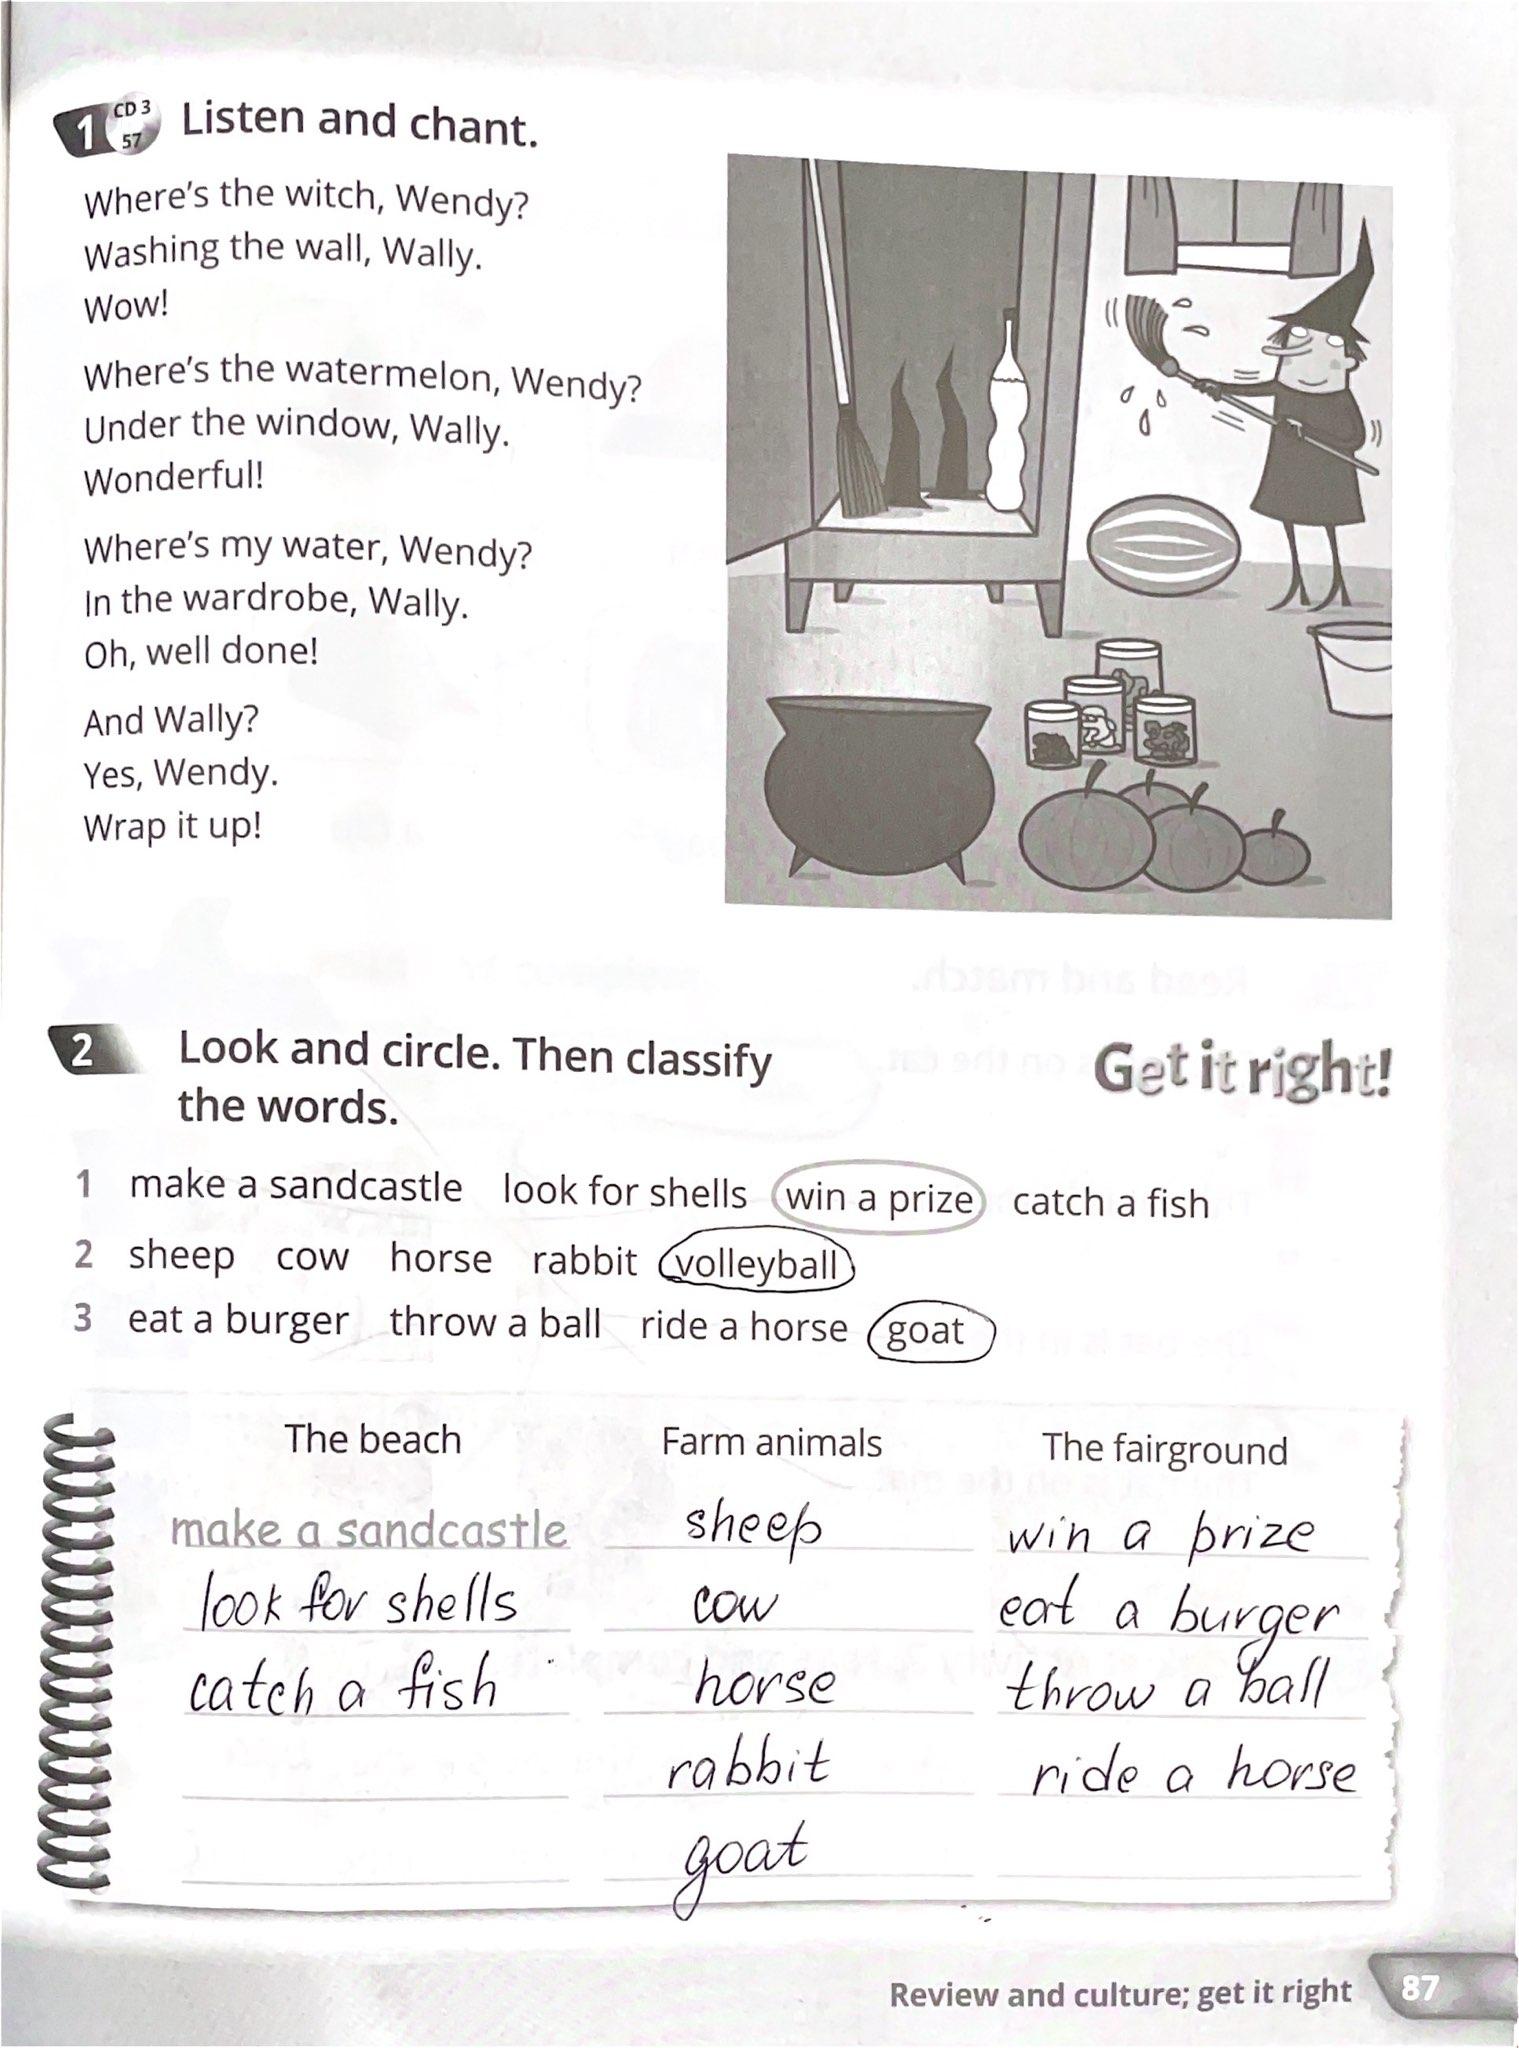 1 CD 3 57 Listen and chant.
Where's the witch, Wendy?
Washing the wall, Wally.
Wow!
Where's the watermelon, Wendy?
Under the window, Wally.
Wonderful!
Where's my water, Wendy?
In the wardrobe, Wally.
Oh, well done!
And Wally?
Yes, Wendy.
Wrap it up!
2 Look and circle. Then classify
the words.
Get it right!
1 make a sandcastle look for shells win a prize catch a fish
2 sheep cow horse rabbit volleyball
3 eat a burger throw a ball ride a horse goat
The beach Farm animals The fairground
make a sandcastle sheep win a prize
look for shells cow eat a burger
catch a fish horse throw a ball
rabbit ride a horse
goat
Review and culture; get it right 87